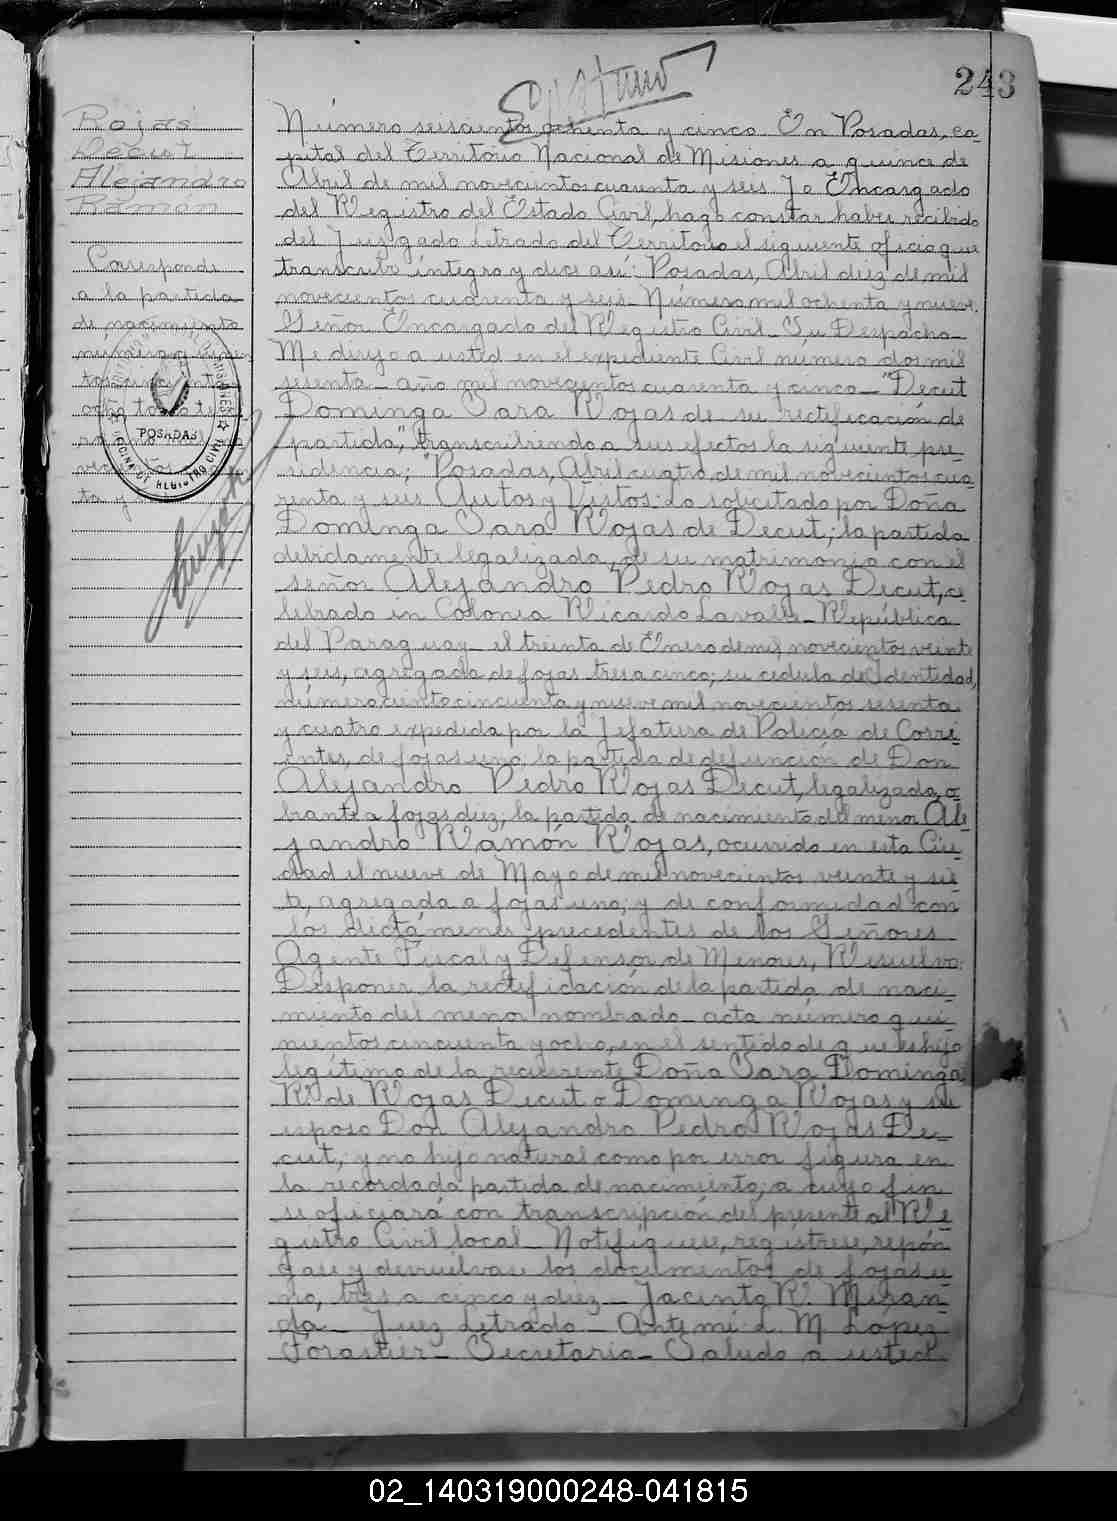 243
Rojas
Decut
Alejandro
Ramón
Corresponde
a la partida
de nacimiento
POSADAS
OFICINA DE REGISTRO CIVIL
Número seiscientos ochenta y cinco. En Posadas, ca-
pital del Territorio Nacional de Misiones a quince de
Abril de mil novecientos cuarenta y seis. Yo Encargado
del Registro del Estado Civil, hago constar haber recibido
del Juzgado Letrado del Territorio el siguiente oficio que
transcribo íntegro y dice así: Posadas, Abril diez de mil
novecientos cuarenta y seis. Número mil ochenta y nueve.
Señor Encargado del Registro Civil. Su Despacho_
Me dirijo a usted en el expediente Civil número dos mil
sesenta_ año mil novecientos cuarenta y cinco_ "Decut
Dominga Sara Rojas de su rectificación de
partida", transcribiendo a sus efectos la siguiente pro-
videncia; "Posadas, Abril cuatro de mil novecientos cua-
renta y seis Autos y Vistos: Lo solicitado por Doña
Dominga Sara Rojas de Decut; la partida
debidamente legalizada, de su matrimonio con el
señor Alejandro Pedro Rojas Decut, ce-
lebrado en Colonia Ricardo Lavalle_ República
del Paraguay_ el treinta de Enero de mil novecientos veinte
y seis, agregada de fojas tres a cinco; su cedula de Identidad,
número ciento cincuenta y nueve mil novecientos sesenta
y cuatro expedida por la Jefatura de Policía de Corri-
entes, de fojas uno; la partida de defunción de Don
Alejandro Pedro Rojas Decut, legalizada, o-
brante a fojas diez; la partida de nacimiento del menor Ale-
jandro Ramón Rojas, ocurrido en esta Ciu-
dad el nueve de Mayo de mil novecientos veinte y sie-
te, agregada a fojas uno; y de conformidad con
los dictámenes precedentes de los Señores
Agente Fiscal y Defensor de Menores, Resuelvo:
Disponer la rectificación de la partida de naci-
miento del menor nombrado_ acta número qui-
nientos cincuenta y ocho, en el sentido de que es hijo
legítimo de la recurrente Doña Sara Dominga
R. de Rojas Decut o Dominga Rojas y su
esposo Don Alejandro Pedro Rojas De-
cut; y no hijo natural como por error figura en
la recordada partida de nacimiento; a cuyo fin
se oficiará con transcripción del presente al Re-
gistro Civil local_ Notifíquese, regístrese, repón-
gase y devuélvase los documentos de fojas u-
no, tres a cinco y diez_ Jacinto R. Miran-
da_ Juez Letrado_ Ante mi: L. M. López
Forastier_ Secretaria_ Saludo a usted
02_140319000248-041815